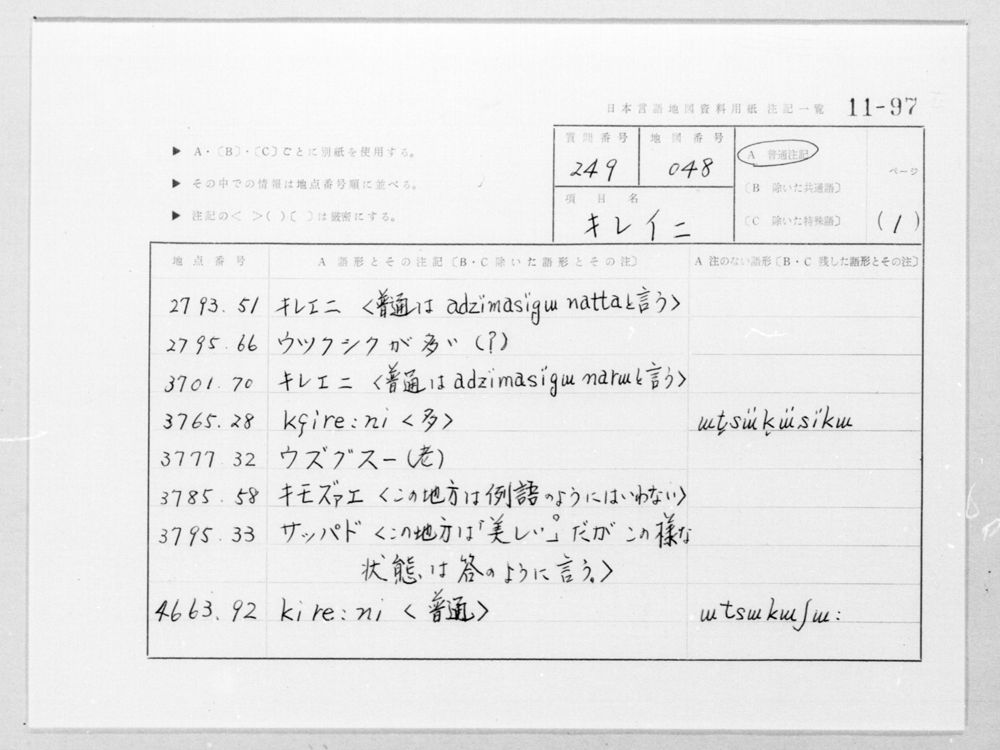 日本言語地図資料用紙 注記一覧 11-97
▶ A・〔B〕・〔C〕ごとに別紙を使用する。
▶ その中での情報は地点番号順に並べる。
▶ 注記の< >( )〔 〕は厳密にする。
質問番号 地図番号
249 048
項目名
キレイニ
A 普通注記
〔B 除いた共通語〕
〔C 除いた特殊語〕
ページ
(1)
地点番号 A 語形とその注記〔B・C除いた語形とその注〕 A 注のない語形〔B・C 残した語形とその注〕
2793.51 キレエニ <普通は adzïmasïgɯ nattaと言う>
2795.66 ウツクシクが多い(?)
3701.70 キレエニ <普通は adzïmasïgɯ narɯと言う>
3765.28 kçire:ni <多> ɯt̤sɯ̈k̤ɯ̈sïkɯ
3777.32 ウズグスー(老)
3785.58 キモズァエ <この地方は例語のようにはいわない>
3795.33 サッパド <この地方は「美しい。」だがこの様な
状態は答のように言う。>
4663.92 kire:ni <普通> ɯtsɯkɯʃɯ: